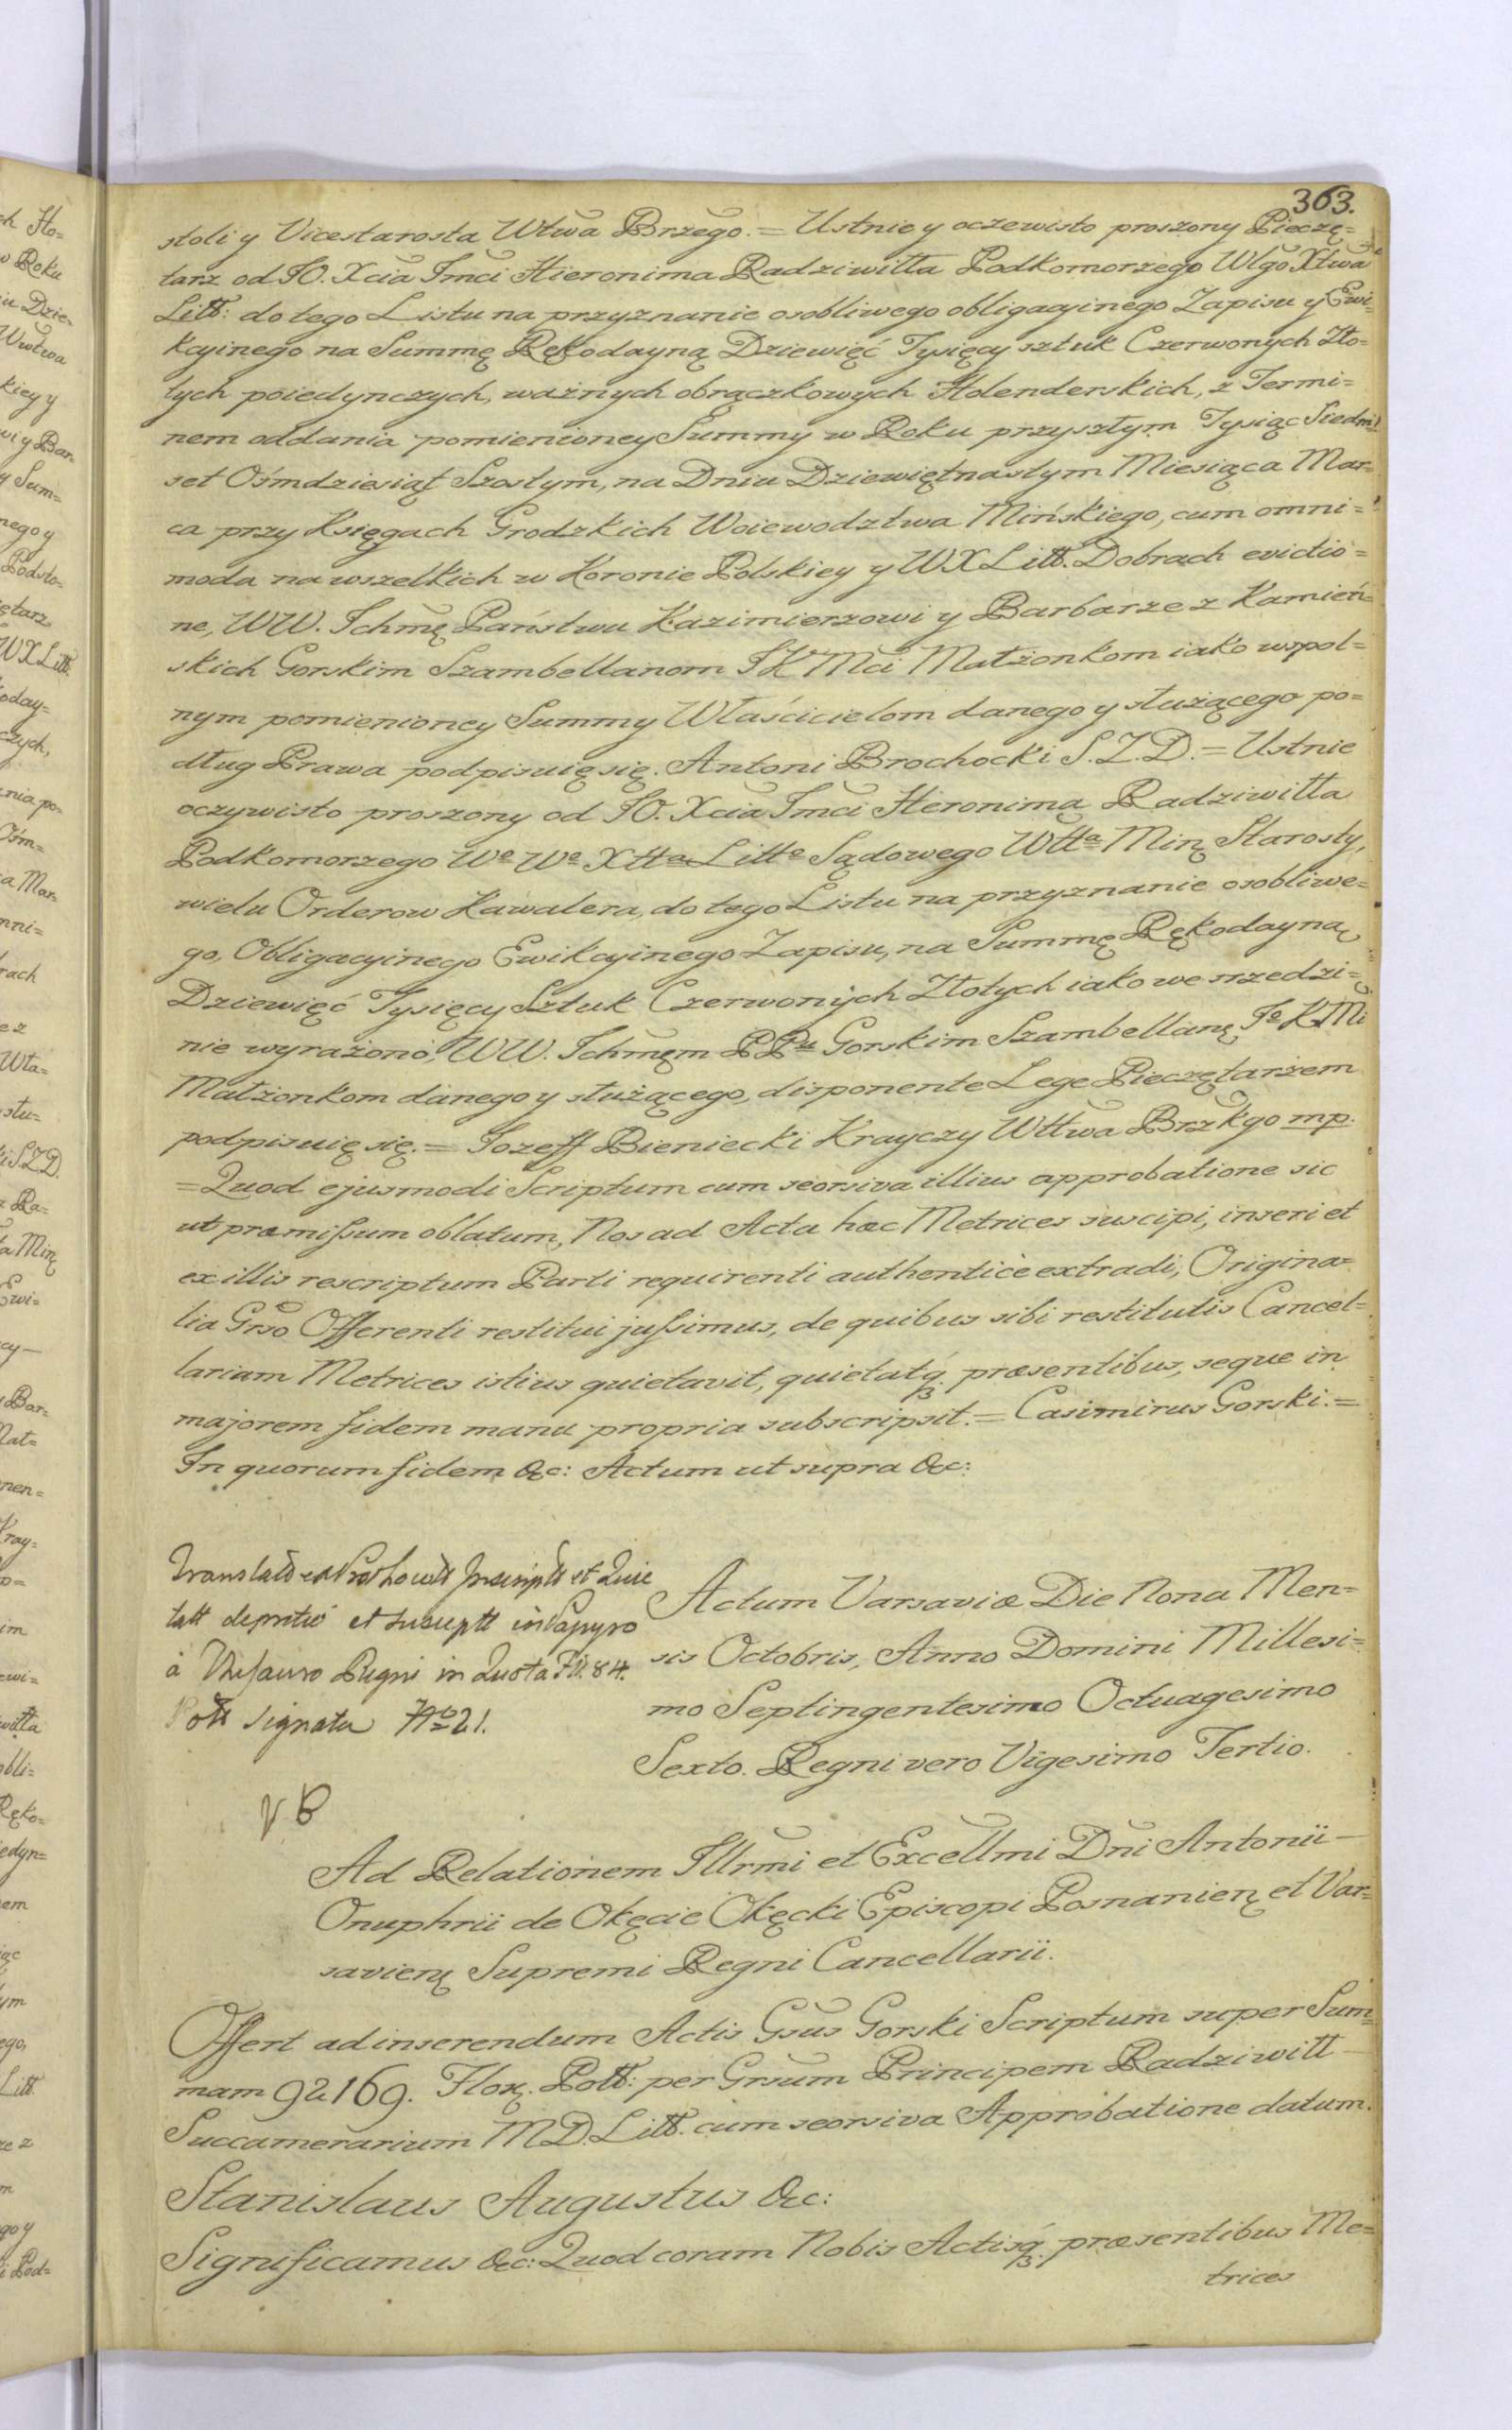 363.
stoli y Vicestarosta Wtwa Brzego. = Ustnie y oczewisto proszony Pieczę=
tarz od JO. Xcia Jmci Hieronima Radziwiłła Podkomorzego Wlgo Xtwa
Litt: do tego Listu na przyznanie osobliwego obligacyinego Zapisu y Ewi=
kcyinego na Summę Rękodayną Dziewięć Tysięcy sztuk Czerwonych Zło=
tych poiedynczych, ważnych obrączkowych Holenderskich, z Termi=
nem oddania pomienioney Summy w Roku przyszłym Tysiąc Siedm
set Ośmdziesiąt Szostym, na Dniu Dziewiętnastym Miesiąca Mar=
ca przy Księgach Grodzkich Woiewodztwa Mińskiego, cum omni=
moda na wszelkich w Koronie Polskiey y WXLitt. Dobrach evictio=
ne, WW. Ichmę Państwu Kazimierzowi y Barbarze z Kamień=
skich Gorskim Szambellanom JKMci Małżonkom iako wspol=
nym pomienioney Summy Właścicielom danego y służącego po=
dług Prawa podpisuię się. Antoni Brochocki S.Z.D. = Ustnie
oczywisto proszony od JO. Xcia Jmci Hieronima Radziwiłła
Podkomorzego Wo Wo Xtta Litto Sądowego Wtta Minę Starosty,
wielu Orderow Kawalera, do tego Listu na przyznanie osobliwe=
go, Obligacyinego Ewikcyinego Zapisu, na Summę Rękodayną
Dziewięć Tysięcy Sztuk Czerwonych Złotych iako we srzedzi=
nie wyrażono WW. Ichmęm PPu Gorskim Szambellanę Jo KMi
Małżonkom danego y służącego, disponente Lege Pieczętarzem
podpisuię się. = Jozeff Bieniecki Krayczy Wttwa Brzkgo mp.
= Quod ejusmodi Scriptum cum seorsiva illius approbatione sic
ut præmissum oblatum, Nos ad Acta hæc Metrices suscipi, inseri et
ex illis rescriptum Parti requirenti authenticè extradi, Origina=
lia Grso Offerenti restitui jussimus, de quibus sibi restitutis Cancel=
lariam Metrices istius quietavit, quietatq præsentibus, seque in
majorem fidem manu propria subscripsit. = Casimirus Gorski. =
In quorum fidem &c: Actum ut supra &c:
à Thesauro Regni in Quota Fll. 84.
Poll signata No 21.
Actum Varsaviæ Die Nona Men=
sis Octobris, Anno Domini Millesi=
mo Septingentesimo Octuagesimo
Sexto. Regni vero Vigesimo Tertio.
Ad Relationem Illrmi et Excellmi Dni Antonii
Onuphrii de Okęcie Okęcki Episcopi Posnanienę et Var=
savienę Supremi Regni Cancellarii.
Offert ad inserendum Actis Gsus Gorski Scriptum super Sum=
mam 92169. Flor. Poll: per Grsum Principem Radziwiłł
Succamerarium M.D. Litt. cum seorsiva Approbatione datum.
Stanislaus Augustus &c:
Significamus &c: Quod coram Nobis Actisq. præsentibus Me=
trices